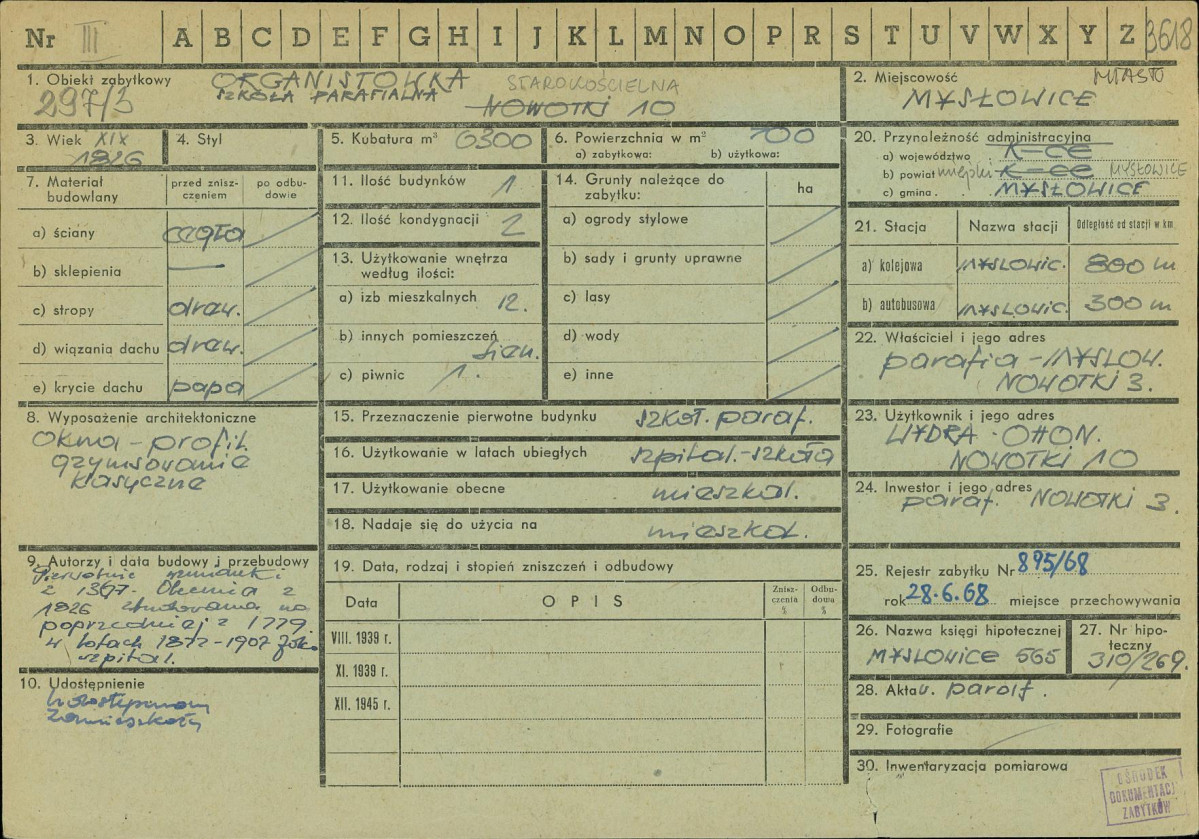 Nr III A B C D E F G H I J K L M N O P R S T U V W X Y Z 3618
1. Obiekt zabytkowy ORGANISTÓWKA STAROKOŚCIELNA
297/3 SZKOŁA PARAFIALNA NOWOTKI 10
2. Miejscowość MIASTO
MYSŁOWICE
3. Wiek XIX
1826
4. Styl
5. Kubatura m³ 6300
6. Powierzchnia w m² 700
a) zabytkowa: b) użytkowa:
20. Przynależność administracyjna
a) województwo K-CE
b) powiat miejski K-CE MYSŁOWICE
c) gmina . MYSŁOWICE
7. Materiał budowlany
przed zniszczeniem
po odbudowie
a) ściany cegła
b) sklepienia —
c) stropy drew.
d) wiązania dachu drew.
e) krycie dachu papa
11. Ilość budynków 1
12. Ilość kondygnacji 2
13. Użytkowanie wnętrza
według ilości:
a) izb mieszkalnych 12.
b) innych pomieszczeń
sien.
c) piwnic 1.
14. Grunty należące do
zabytku:
ha
a) ogrody stylowe
b) sady i grunty uprawne
c) lasy
d) wody
e) inne
21. Stacja Nazwa stacji Odległość od stacji w km
a) kolejowa MYSLOWIC. 800 m
b) autobusowa MYSLOWIC. 300 m
22. Właściciel i jego adres
parafia - MYSŁOW.
NOWOTKI 3.
8. Wyposażenie architektoniczne
okna - profil.
gzymsowanie
klasyczne
15. Przeznaczenie pierwotne budynku szkoł. paraf.
16. Użytkowanie w latach ubiegłych szpital.-szkoła
17. Użytkowanie obecne mieszkal.
18. Nadaje się do użycia na mieszkal.
23. Użytkownik i jego adres
WYDRA - OTTON.
NOWOTKI 10
24. Inwestor i jego adres
paraf. NOWOTKI 3.
9. Autorzy i data budowy i przebudowy
Pierwotnie wzmianki
z 1367. Obecnia z
1826 zbudowana na
poprzedniej z 1779
w latach 1872-1907
szpital.
10. Udostępnienie
19. Data, rodzaj i stopień zniszczeń i odbudowy
Data OPIS Zniszczenia % Odbudowa %
VIII. 1939 r.
XI. 1939 r.
XII. 1945 r.
25. Rejestr zabytku Nr 895/68
rok 28.6.68 miejsce przechowywania
26. Nazwa księgi hipotecznej
MYSLOWICE 565
27. Nr hipoteczny
310/269.
28. Akta u. paraf.
29. Fotografie
30. Inwentaryzacja pomiarowa
OŚRODEK
DOKUMENTACJI
ZABYTKÓW